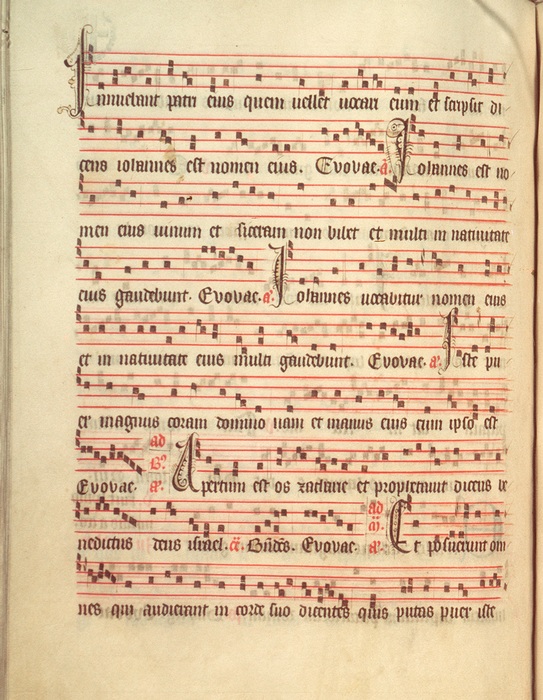 Innuebant patri eius quem uellet uocari eum et scripsit di
cens iohannes est nomen eius. Evovae. a. Iohannes est no
men eius uinum et siceram non bibet et multi in natiuitate
eius gaudebunt. Evovae. a. Iohannes uocabitur nomen eius
et in natiuitate eius multi gaudebunt. Evovae. a. Iste pu
er magnus coram domino nam et manus eius cum ipso est
ad
Evovae. a. Apertum est os zacharie et prophetauit dicens be
ad
nedictus deus israel. Evovae. a. Et posuerunt om
nes qui audierant in corde suo dicentes quis putas puer iste